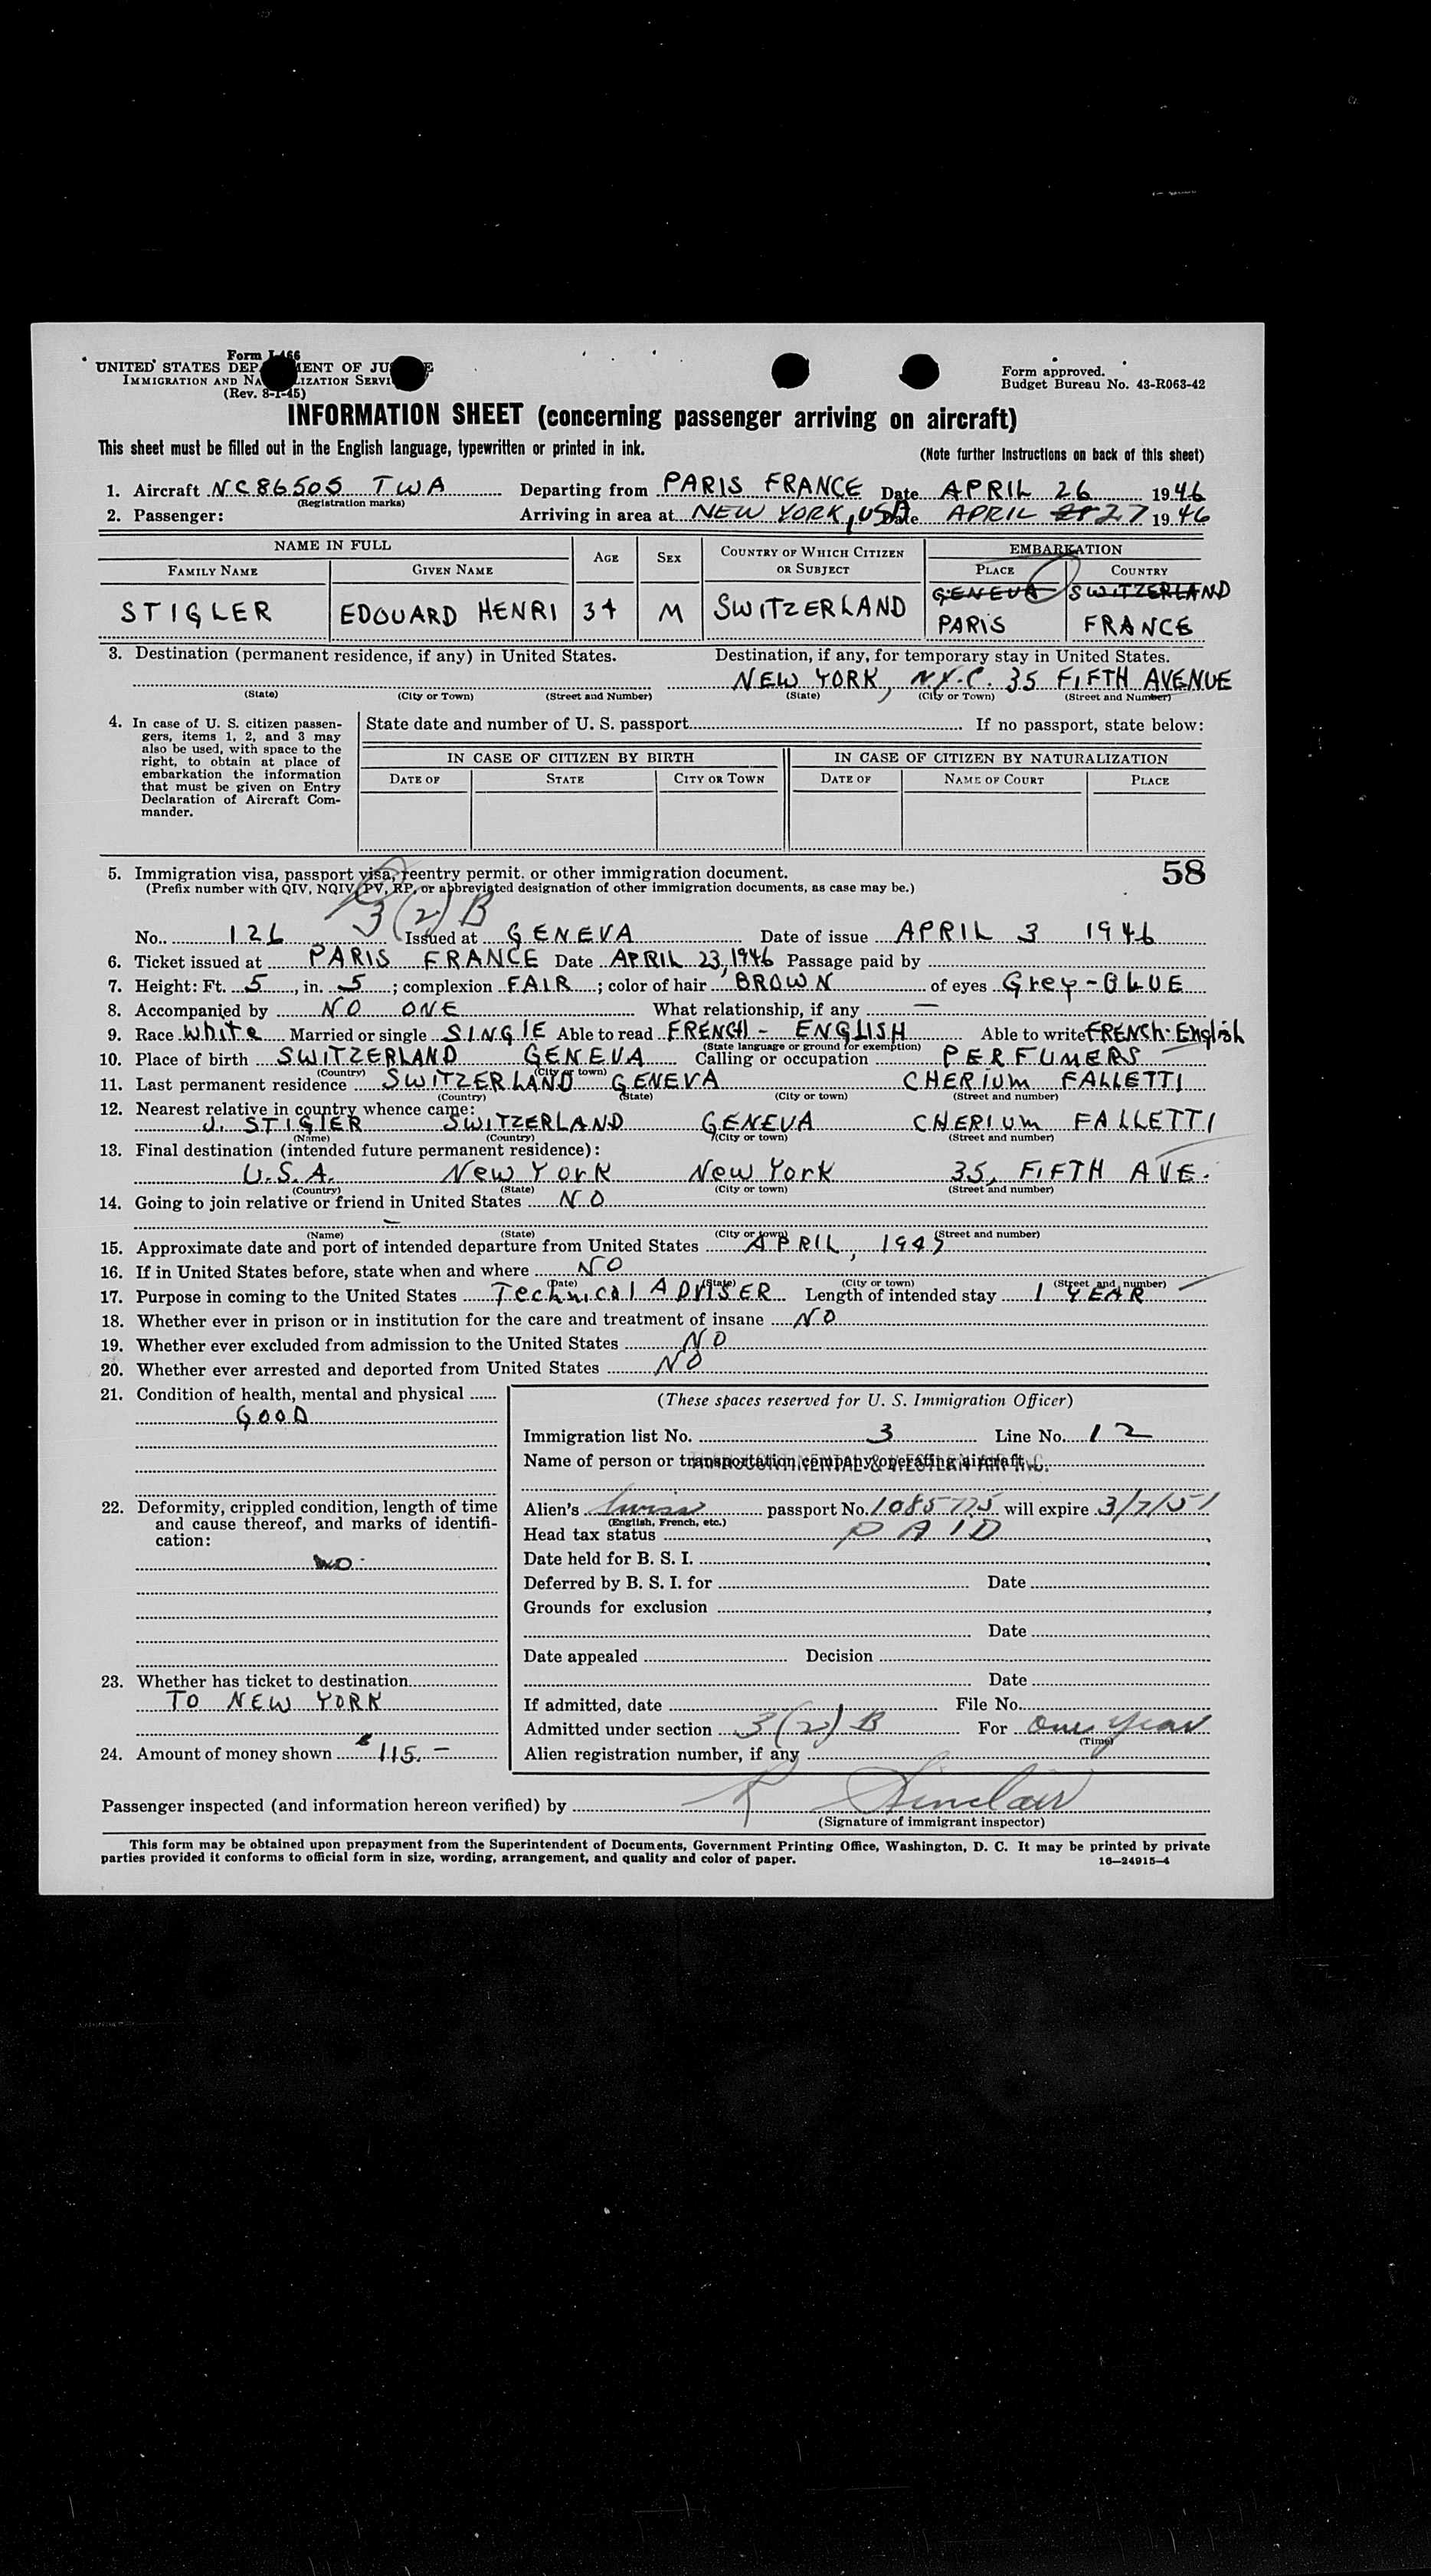 Form I-466
UNITED STATES DEPARTMENT OF JUSTICE
IMMIGRATION AND NATURALIZATION SERVICE
(Rev. 8-1-45)
Form approved.
Budget Bureau No. 43-R063-42
INFORMATION SHEET (concerning passenger arriving on aircraft)
This sheet must be filled out in the English language, typewritten or printed in ink. (Note further instructions on back of this sheet)
1. Aircraft NC86505 TWA Departing from PARIS FRANCE Date APRIL 26 1946
(Registration marks)
2. Passenger: Arriving in area at NEW YORK, USA Date APRIL 27 1946
NAME IN FULL AGE SEX COUNTRY OF WHICH CITIZEN OR SUBJECT EMBARKATION
FAMILY NAME GIVEN NAME PLACE COUNTRY
GENEVA SWITZERLAND
STIGLER EDOUARD HENRI 34 M SWITZERLAND PARIS FRANCE
3. Destination (permanent residence, if any) in United States. Destination, if any, for temporary stay in United States.
NEW YORK, N.Y.C. 35 FIFTH AVENUE
(State) (City or Town) (Street and Number) (State) (City or Town) (Street and Number)
4. In case of U. S. citizen passen-
gers, items 1, 2, and 3 may
also be used, with space to the
right, to obtain at place of
embarkation the information
that must be given on Entry
Declaration of Aircraft Com-
mander.
State date and number of U. S. passport If no passport, state below:
IN CASE OF CITIZEN BY BIRTH IN CASE OF CITIZEN BY NATURALIZATION
DATE OF STATE CITY OR TOWN DATE OF NAME OF COURT PLACE
58
5. Immigration visa, passport visa, reentry permit. or other immigration document.
(Prefix number with QIV, NQIV, PV, RP, or abbreviated designation of other immigration documents, as case may be.)
3(2)B
No. 126 Issued at GENEVA Date of issue APRIL 3 1946
6. Ticket issued at PARIS FRANCE Date APRIL 23, 1946 Passage paid by
7. Height: Ft. 5, in. 5; complexion FAIR; color of hair BROWN of eyes Grey-BLUE
8. Accompanied by NO ONE What relationship, if any —
9. Race White Married or single SINGlE Able to read FRENCH - ENGLISH Able to write FRENCh-English
(State language or ground for exemption)
10. Place of birth SWITZERLAND GENEVA Calling or occupation PERFUMERS
(Country) (City or town)
11. Last permanent residence SWITZERLAND GENEVA CHERIUM FALLETTI
(Country) (State) (City or town) (Street and number)
12. Nearest relative in country whence came:
J. STIGlER SWITZERLAND GENEVA CHERIUM FALLETTI
(Name) (Country) (City or town) (Street and number)
13. Final destination (intended future permanent residence):
U.S.A. New York New York 35, FIFTH AVE.
(Country) (State) (City or town) (Street and number)
14. Going to join relative or friend in United States NO
—
(Name) (State) (City or town) (Street and number)
15. Approximate date and port of intended departure from United States APRIL, 1947
16. If in United States before, state when and where NO
(Date) (State) (City or town) (Street and number)
17. Purpose in coming to the United States Technical ADVISER Length of intended stay 1 YEAR
18. Whether ever in prison or in institution for the care and treatment of insane NO
19. Whether ever excluded from admission to the United States NO
20. Whether ever arrested and deported from United States NO
21. Condition of health, mental and physical
GOOD
22. Deformity, crippled condition, length of time
and cause thereof, and marks of identifi-
cation:
NO-
23. Whether has ticket to destination
TO NEW YORK
24. Amount of money shown $115.-
(These spaces reserved for U. S. Immigration Officer)
Immigration list No. 3 Line No. 12
Name of person or transportation company operating aircraft
CONTINENTAL & WESTERN AIR INC.
Alien's Swiss passport No. 1085775 will expire 3/7/51
(English, French, etc.)
Head tax status PAID
Date held for B. S. I.
Deferred by B. S. I. for Date
Grounds for exclusion
Date
Date appealed Decision
Date
If admitted, date File No.
Admitted under section 3(2)B For One Year
(Time)
Alien registration number, if any
Passenger inspected (and information hereon verified) by R Sinclair
(Signature of immigrant inspector)
This form may be obtained upon prepayment from the Superintendent of Documents, Government Printing Office, Washington, D. C. It may be printed by private
parties provided it conforms to official form in size, wording, arrangement, and quality and color of paper. 16—24915-4